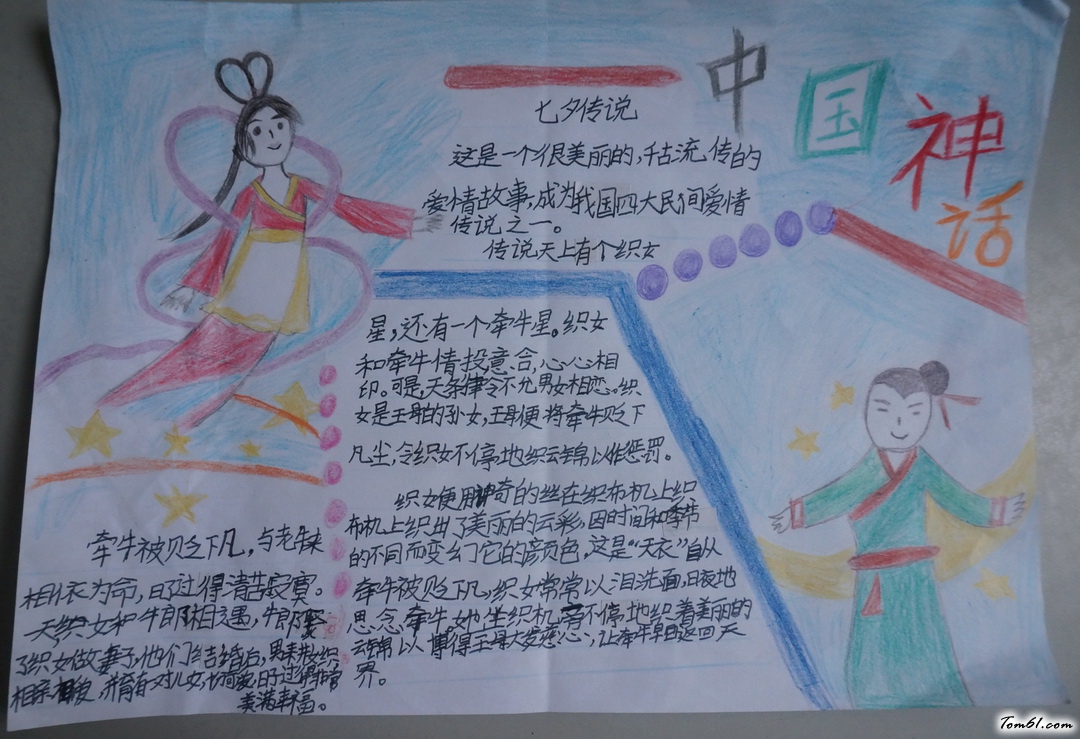 中国神话
七夕传说
这是一个很美丽的,千古流传的
爱情故事,成为我国四大民间爱情
传说之一。
传说天上有个织女
星,还有一个牵牛星。织女
和牵牛情投意合,心心相
印。可是,天条律令不允男女相恋。织
女是王母的孙女,王母便将牵牛贬下
凡尘,令织女不停地织云锦以作惩罚。
织女便用神奇的丝在织布机上织
布机上织出了美丽的云彩,因时间和季节
的不同而变幻它的颜色,这是“天衣”自从
牵牛被贬下凡,织女常常以泪洗面,日夜地
思念牵牛她坐织机旁不停地织着美丽的
云锦以博得王母大发慈心,让牵牛早日返回天
界。
牵牛被贬下凡,与老牛
相依为命,日子过得清苦寂寞。
一天织女和牛郎相遇,牛郎娶
了织女做妻子,他们结婚后,男耕女织
相亲相爱,并育有一对儿女,日子过得非常
美满幸福。
Tom61.com